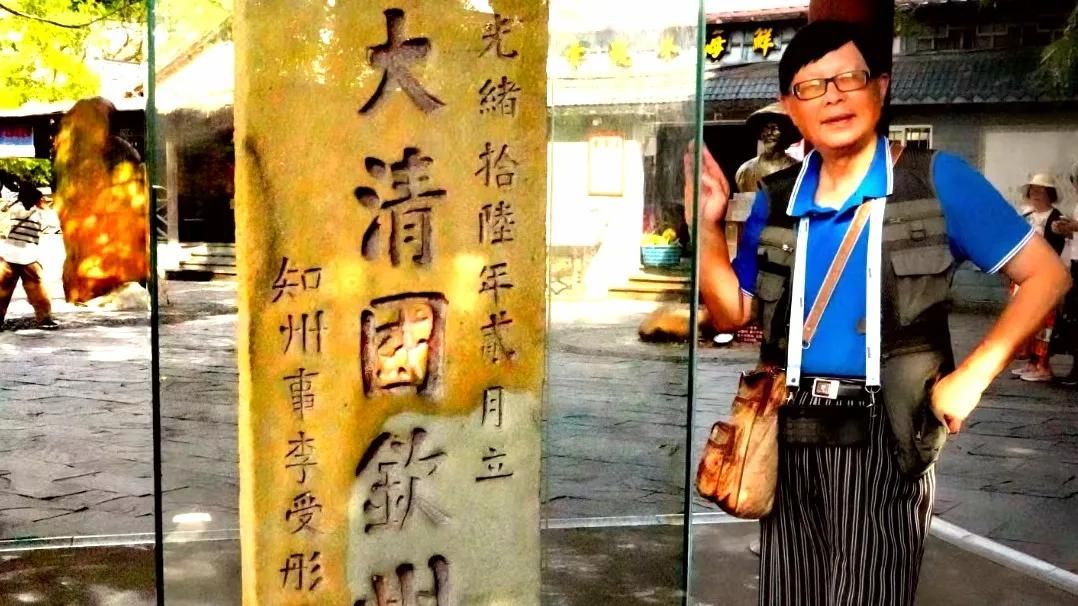 光緒拾陸年貳月立
大清國欽州
知州事李受彤
海鮮